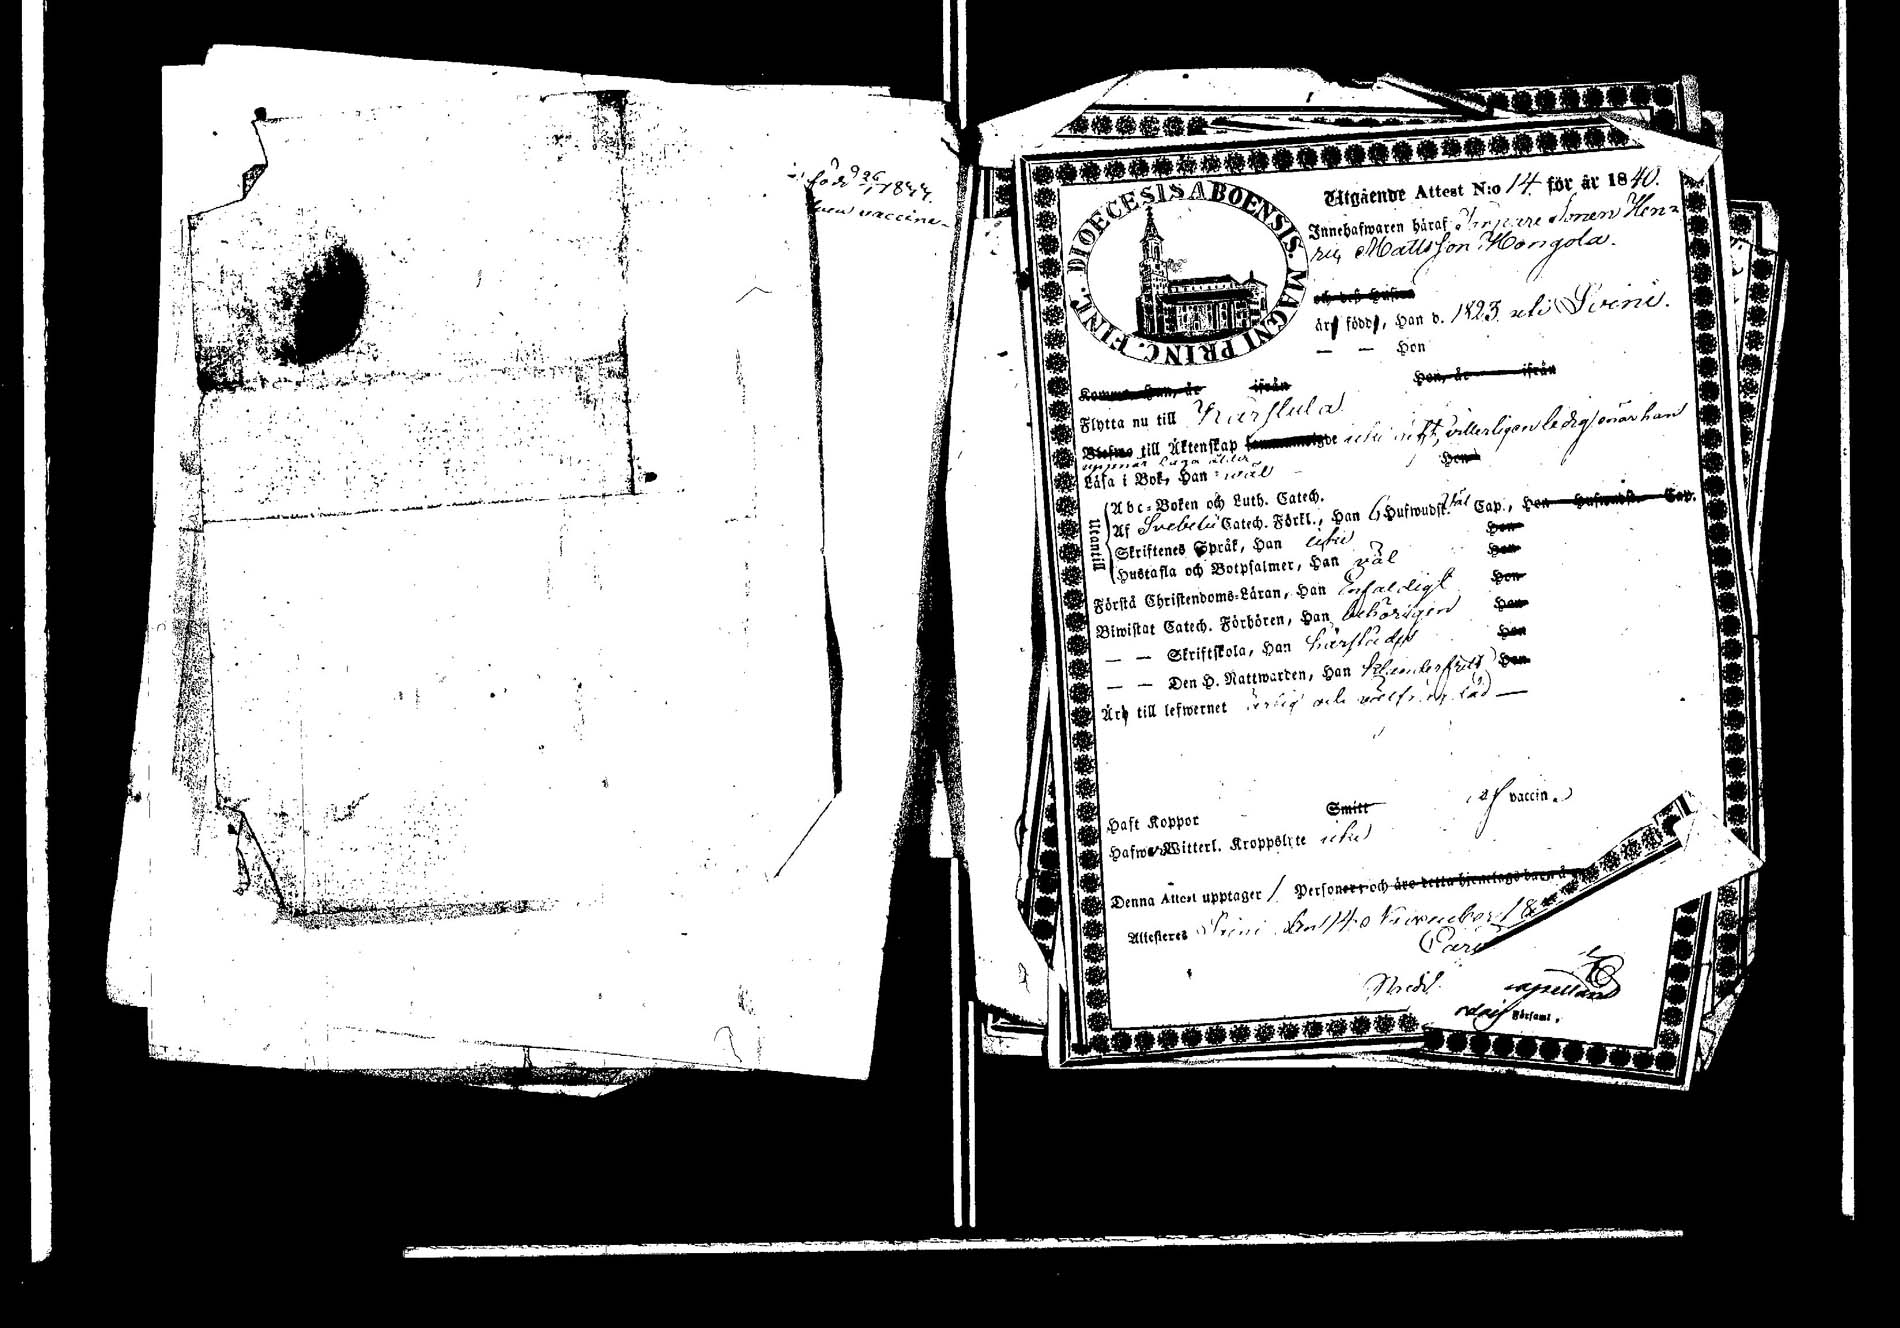 född 26/1 1844.
även vaccine-
DIOECESIS ABOENSIS. MAGNI PRINC. FINL.
Utgående Attest N:o 14 för år 1840.
Innehafwaren häraf Sonen Hen-
ric Mattsson Hongola.
och deß Hustru
äro födde, Han d. 1823 uti Svini.
— — Hon
Komma, Han, år ifrån Hon, år ifrån
Flytta nu till Karstula
till Äktenskap icke gift, vitterligen ledig, när han
uppnår laga ålder
Läsa i Bok, Han wäl Hon
Utantill
Abc-Boken och Luth. Catech.
Af Svebelii Catech. Förkl., Han 6 Hufwudst. Cap., Hon Hufwudst. Cap.
Skriftenes Språk, Han icke Hon
Hustafla och Botpsalmer, Han väl Hon
Förstå Christendoms-Läran, Han Enfaldigt Hon
Biwistat Catech. Förhören, Han behörigen Hon
— — Skriftskola, Han härstädes Hon
— — Den H. Nattwarden, Han Hon
Äro till lefwernet ärlig och —
Haft Koppor Smitt af vaccin.
Hafwa Witterl. Kroppslyte icke
Denna Attest upptager 1 Personer och äro detta hjonelags barn
Attesteres den 14 November 18
Carl
Capellan
Församl.